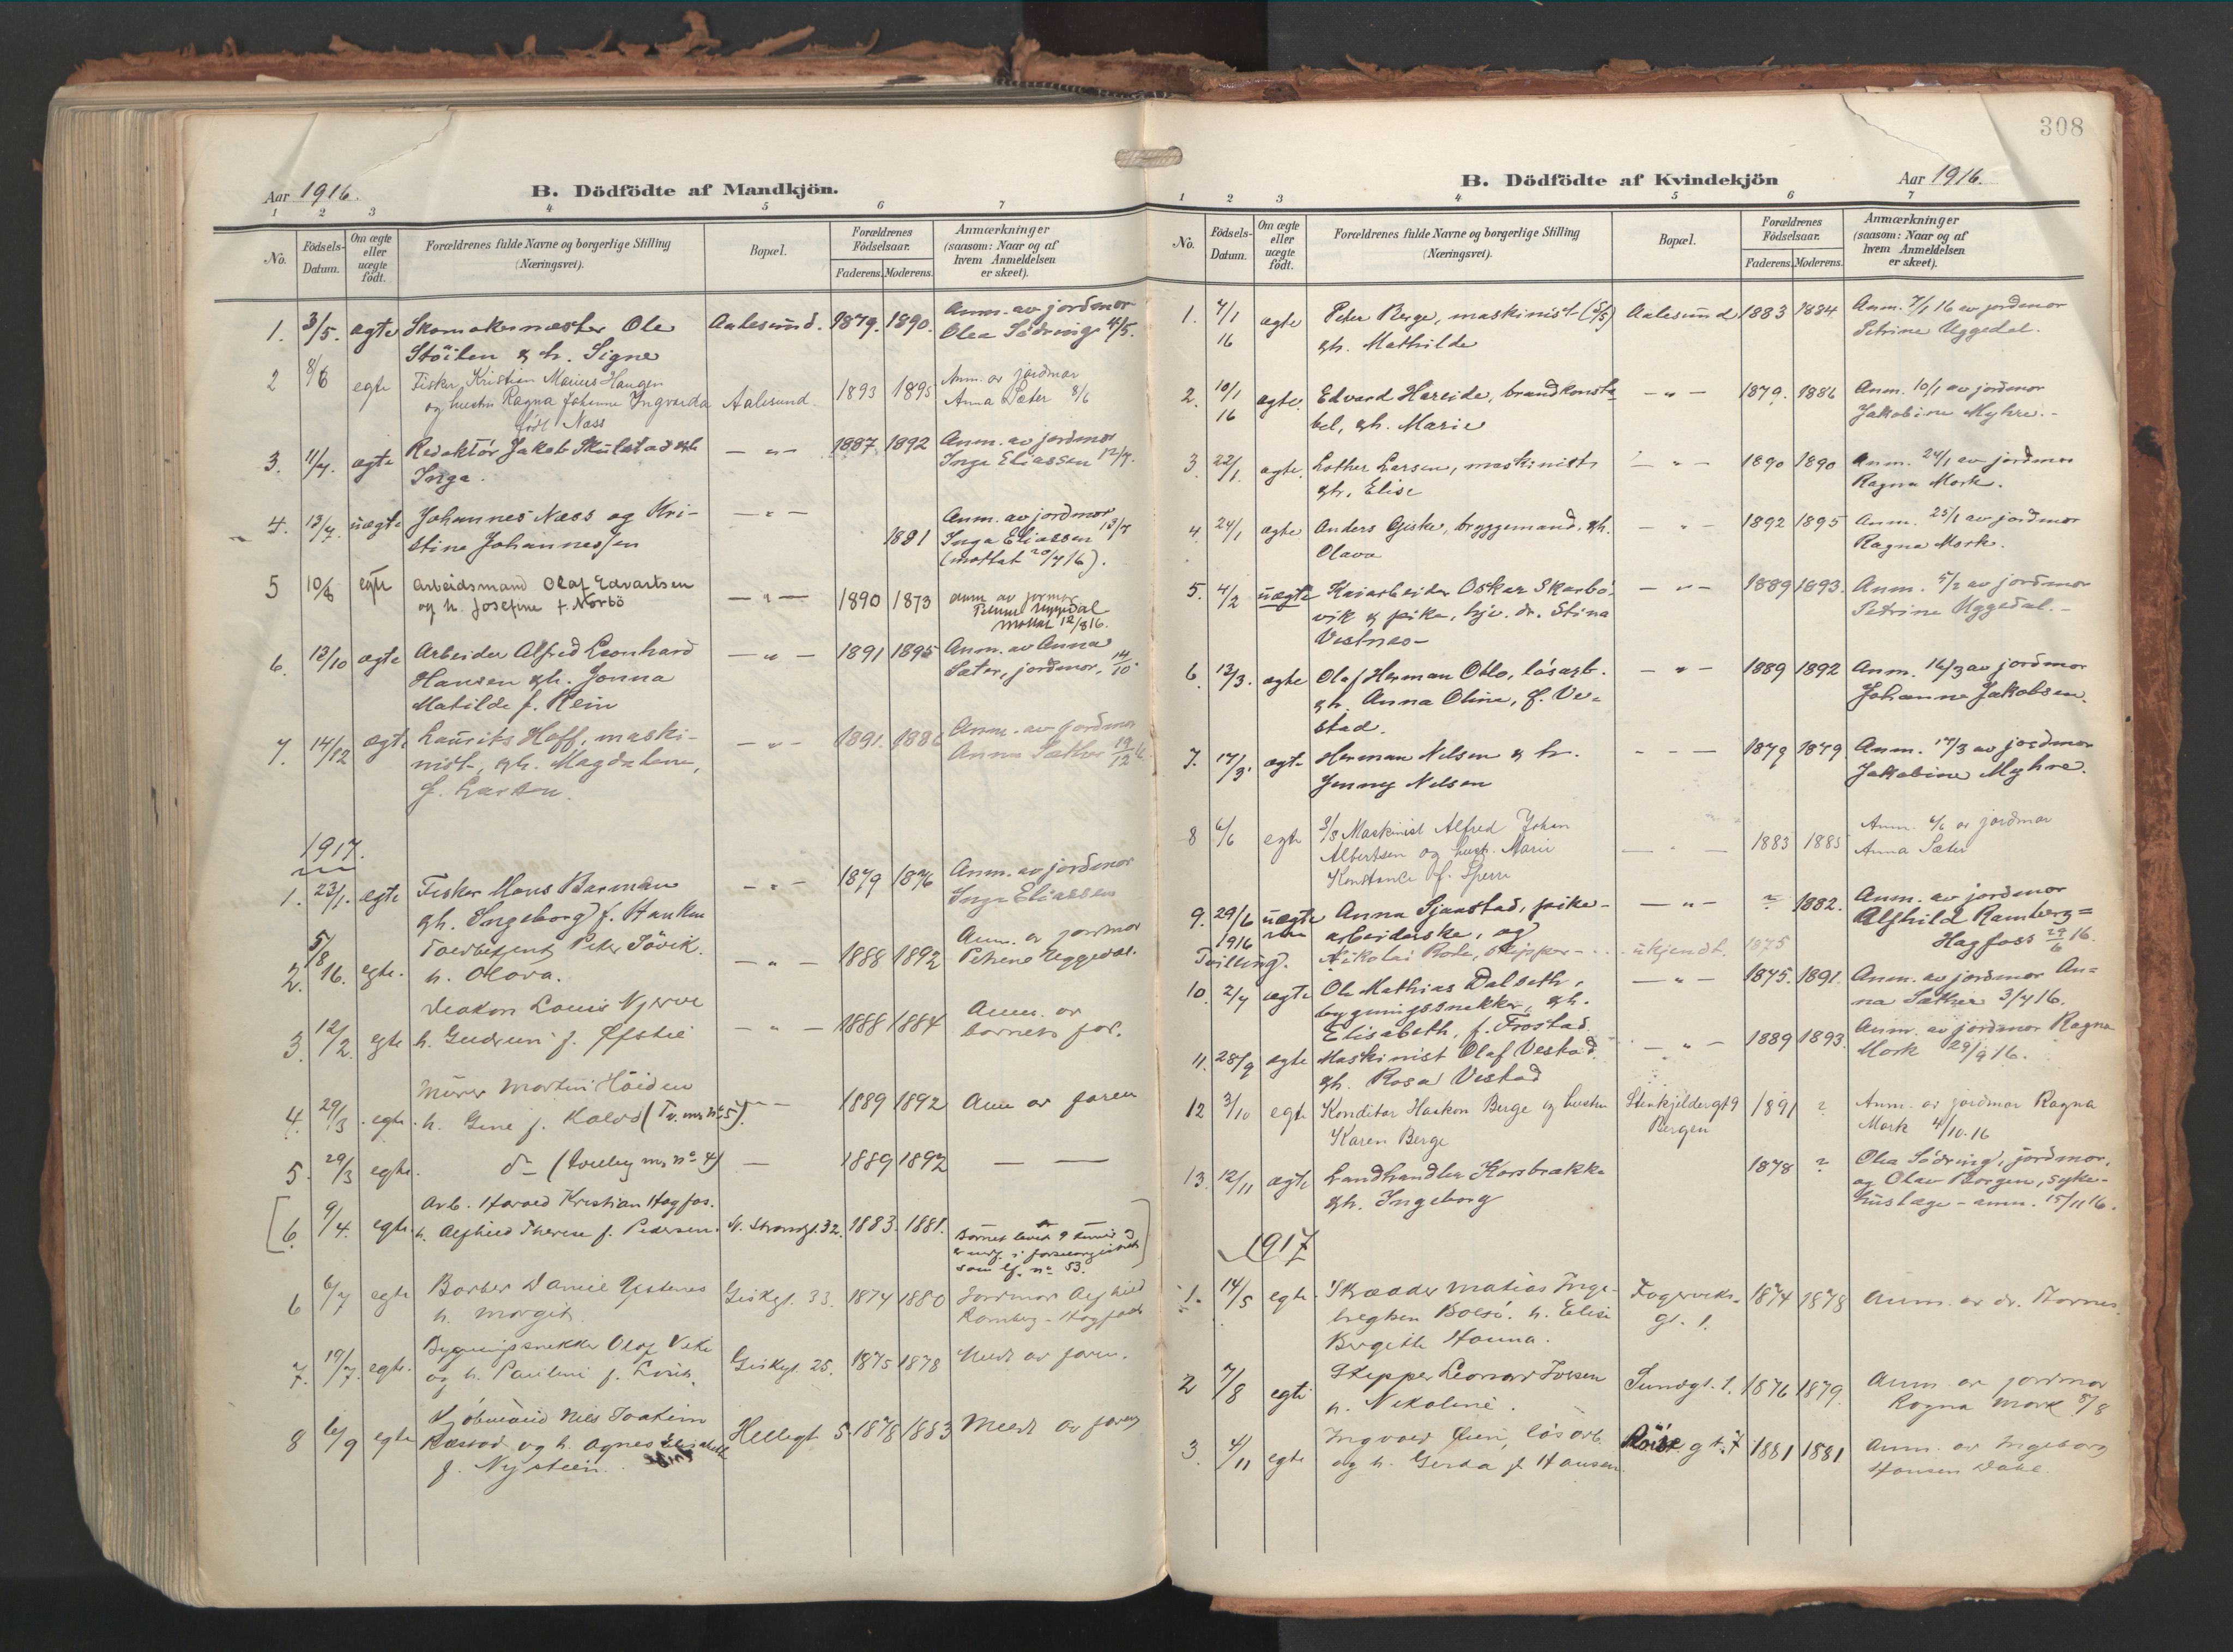 308
Aar 1916.
B. Dödfödte af Mandkjön.
1 2 3 4 5 6 7
No. Födsels-Datum. Om ægte eller uægte født. Forældrenes fulde Navne og borgerlige Stilling (Næringsvei). Bopæl. Forældrenes Födselsaar. Faderens. Moderens. Anmærkninger (saasom: Naar og af hvem Anmeldelsen er skeet).
1. 3/5. ægte Skomakermester Ole Aalesund. 1879. 1890. Anm. av jordmor
Stöilen & h. Signe Olea Södring 4/5.
2 8/6 egte Fisker Kristian Marius Haugen Aalesund. 1893 1895 Anm. av jordmor
og hustru Ragna Johanne Ingvarda Anna Sæter 8/6
født Næss
3. 11/7. ægte Redaktör Jakob Skulstad & h. — " — 1887. 1892 Anm. av jordmor
Inga. Inga Eliassen 12/7.
4. 13/7. uægte Johannes Næss og Kri- — " — Anm. av jordmor
stine Johannessen 1881 Inga Eliassen 13/7
(mottat 20/7 16).
5 10/8 egte Arbeidsmand Olaf Edvartsen — " — 1890 1873 anm av jormor
og h. Josefine f. Norbö Petrine Uggedal
Mottat 12/8 16.
6. 12/10 ægte Arbeider Alfred Leonhard — " — 1891 1895 Anm. av Anna
Hansen & h. Jonna Sæter, jordmor, 14/10.
Matilde f. Rein
7. 14/12 ægte Laurits Hoff, maski- — " — 1891. 1886 Anm. av jordmor
nist, & h. Magdalene, Anna Sæther 19/12
f. Larsen.
1917.
1. 23/1. egte Fisker Mons Barmann — " — 1879 1876 Anm. av jordmor
& h. Ingeborg f. Hauken Inga Eliassen
2. 5/8 16. egte. Peter Sövik. — " — 1888 1892 Anm. av jordmor
h. Olava. Petrine Uggedal.
3. 12/2. egte Diakon Louis Njerve — " — 1888 1884 Anm. av
h. Gudrun f. Øfstie barnets far.
4. 29/3 egte. Murer Martin Höiden — " — 1889 1892 Anm av faren
h. Gine f. Kalvö (Tv. m. nº 5).
5. 29/3 egte. do (tvilling m. nº 4) — 1889 1892 — —
[6. 9/4. egte. Arb. Harald Kristian Hagfos.
h. Alfhild Therese f. Pedersen. N. Strandgt. 32. 1883. 1881. Barnet levet 9 timer og
som lf. nº 53.]
6 6/7 egte Barber Daniel Ystenes Giskegt. 33. 1874 1880 Jordmor Alfhild
h. Margit. Ramberg-Hagfoss
7. 19/7. egte. Bygningssnekker Olaf Giskegt. 25. 1875 1878 Meldt av faren.
og h. Pauline f.
8 6/9 egte Kjöbmand Nils Joakim Hellegt 5. 1878 1883 Meldt av faren
og h. Agnes Elisabeth
f. Nysteen.
B. Dödfödte af Kvindekjön
Aar 1916.
1 2 3 4 5 6 7
No. Födsels-Datum. Om ægte eller uægte födt. Forældrenes fulde Navne og borgerlige Stilling (Næringsvei). Bopæl. Forældrenes Födselsaar. Faderens. Moderens. Anmærkninger (saasom: Naar og af hvem Anmeldelsen er skeet).
1. 7/1 16 ægte Peter Berge, maskinist (D/S) Aalesund 1883 1884 Anm. 7/1 16 av jordmor
& h. Mathilde Petrine Uggedal.
2. 10/1 16 ægte. Edvard Hareide, brandkonsta- — " — 1879. 1886 Anm. 10/1 av jordmor
bel, & h. Marie Jakobine Myhre.-
3 22/1. ægte. Lother Larsen, maskinist, — " — 1890 1890 Anm. 24/1 av jordmor
& h. Elise Ragna Mork.
4 24/1 ægte Anders Giske, bryggemand, & h. — " — 1892 1895 Anm. 25/1 av jordmor
Olava Ragna Mork.
5. 4/2 uægte Kaiarbeider Oskar Skarbö- — " — 1889 1893. Anm. 5/2 av jordmor
vik & pike, hjv. dr. Stina Petrine Uggedal.-
Vestnes-
6. 13/3. ægte Olaf Herman Otto, løsarb. — " — 1889 1892 Anm. 16/3 av jordmor
& h. Anna Oline, f. Ve- Johanne Jakobsen.
stad.
7. 17/3. ægte Herman Nelsen & h. - " — 1879 1879. Anm. 17/3 av jordmor
Jenny Nelsen Jakobine Myhre.
8 6/6 egte D/S Maskinist Alfred Johan Anm. 6/6 av jordmor
Albertsen og hust. Marie — " — 1883 1885 Anna Sæter
Konstance f. Sperre
9. 29/6 1916 uægte Anna Sjaastad, pike- — " — ? 1882. Anm. av jordmor
arbeiderske, og Alfhild Ramberg=
Tvilling. Nikolai Rota, skipper- ukjendt. 1875 Hagfoss 29/6 16.
10. 2/7 ægte Ole Mathias Dalseth, — " — 1875. 1891. Anm. av jordmor An-
bygningssnekker, & h. na Sæther 3/7 16.
Elisabeth, f. Frostad.
11. 28/9 ægte Maskinist Olaf Vestad — " — 1889 1893. Anm. av jordmor Ragna
& h. Rosa Vestad Mork 29/9 16.
12 3/10 egte Konditor Haakon Berge og hustru Stenkjeldergt 9 1891 ? Anm. av jordmor Ragna
Karen Berge Bergen Mork 4/10.16
13. 12/11 ægte Landhandler Korsbrekke 1878 ? Olea Södring, jordmor,
& h. Ingeborg og Olav Borgen, syke-
huslæge - anm. 15/11 16.
1917
1. 14/5 egte Skrædder Matias Inge- Fagerviks- 1874 1878 Anm. av dr. Thornes.
bregtsen Bolsö. h. Elise gt. 1.
Bergitte Hanna.
2 7/8 egte Skipper Leonard Iversen Sundgt. 1. 1876 1879. Anm. av jordmor
h. Nikoline. Ragna Mork 8/8
3. 4/11 egte Ingvald Øien, løsarb. Röisegt. 7 1881 1881 Anm. av Ingeborg
og h. Gerda f. Hansen. Hansen Dahl.